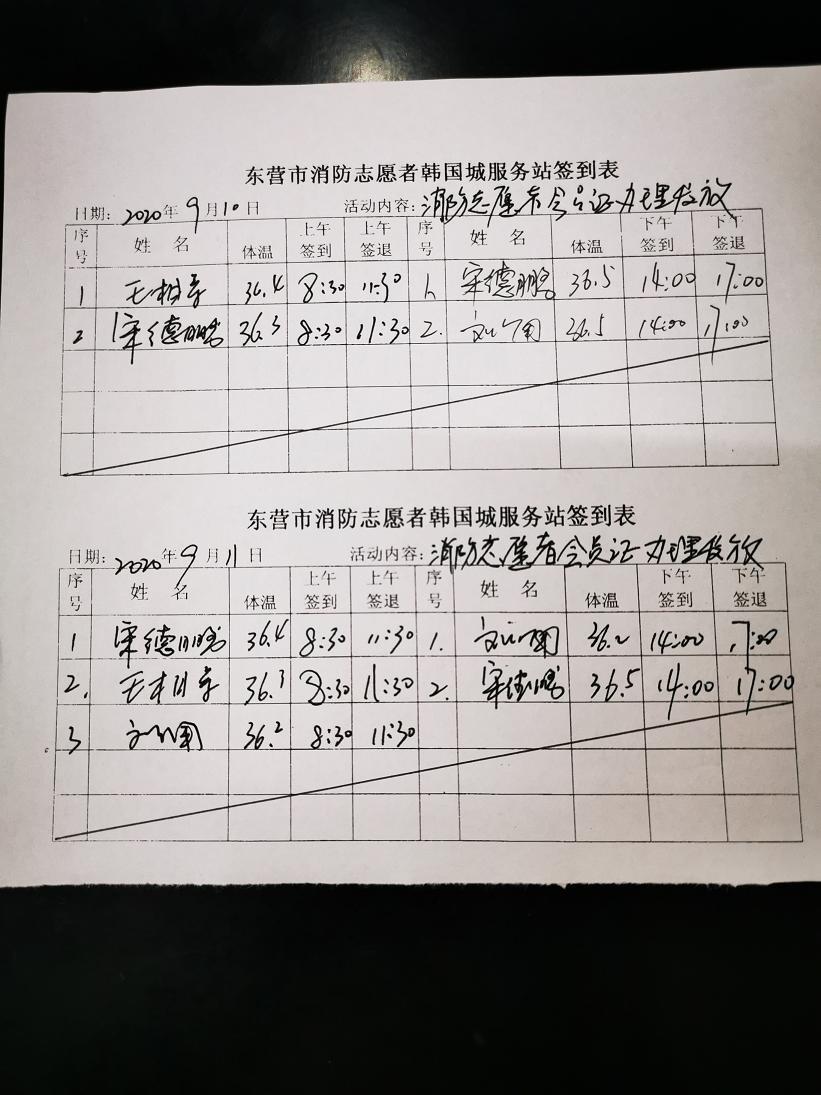 东营市消防志愿者韩国城服务站签到表
日期: 2020年9月10日 活动内容: 消防志愿者会员证办理发放
序号 姓名 体温 上午签到 上午签退 序号 姓名 体温 下午签到 下午签退
1 36.4 8:30 11:30 1. 宋德鹏 36.5 14:00 17:00
2 宋德鹏 36.3 8:30 11:30 2. 36.5 14:00 17:00
东营市消防志愿者韩国城服务站签到表
日期: 2020年9月11日 活动内容: 消防志愿者会员证办理发放
序号 姓名 体温 上午签到 上午签退 序号 姓名 体温 下午签到 下午签退
1 宋德鹏 36.4 8:30 11:30 1. 36.2 14:00 17:00
2. 36.3 8:30 11:30 2. 宋德鹏 36.5 14:00 17:00
3 36.2 8:30 11:30